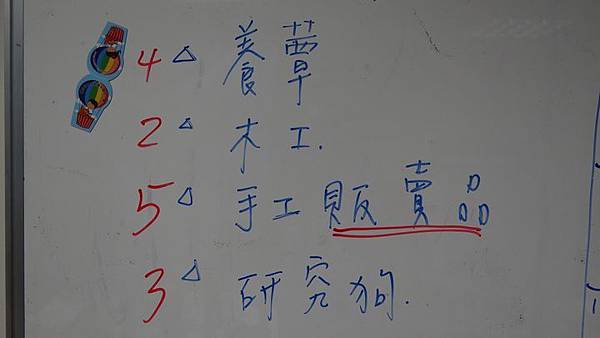 4 △ 養蕈
2 △ 木工.
5 △ 手工販賣品
3 △ 研究狗.